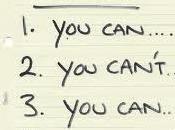 1. YOU CAN....
2. YOU CAN'T.
3. YOU CAN..